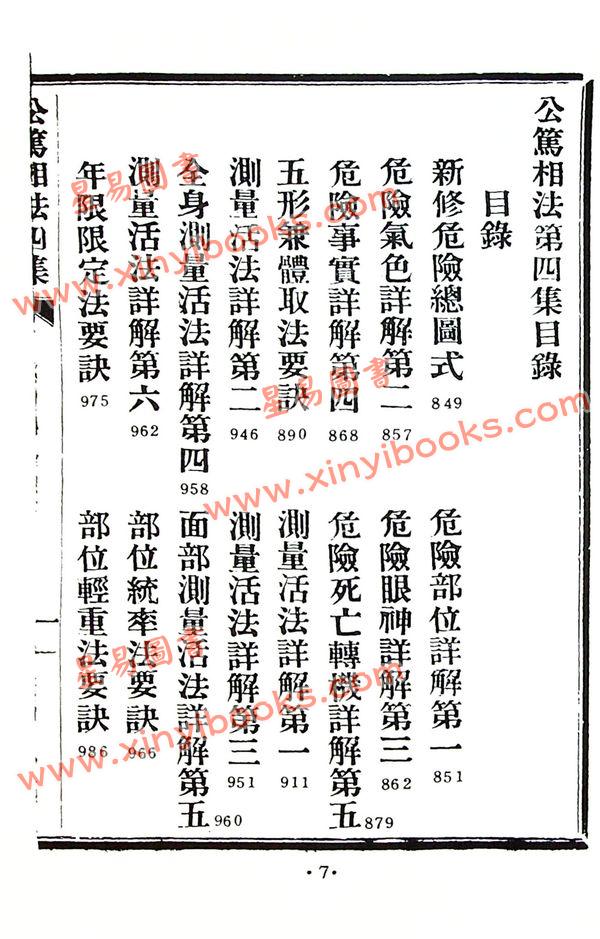 公篤相法第四集目錄
目錄
新修危險總圖式 849
危險部位詳解第一 851
危險氣色詳解第二 857
危險眼神詳解第三 862
危險事實詳解第四 868
危險死亡轉機詳解第五 879
五形兼體取法要訣 890
測量活法詳解第一 911
測量活法詳解第二 946
測量活法詳解第三 951
全身測量活法詳解第四 958
面部測量活法詳解第五 960
測量活法詳解第六 962
部位統率法要訣 966
年限限定法要訣 975
部位輕重法要訣 986
公篤相法四集
一
·7·
星易圖書
www.xinyibooks.com
星易圖書
www.xinyibooks.com
星易圖書
www.xinyibooks.com